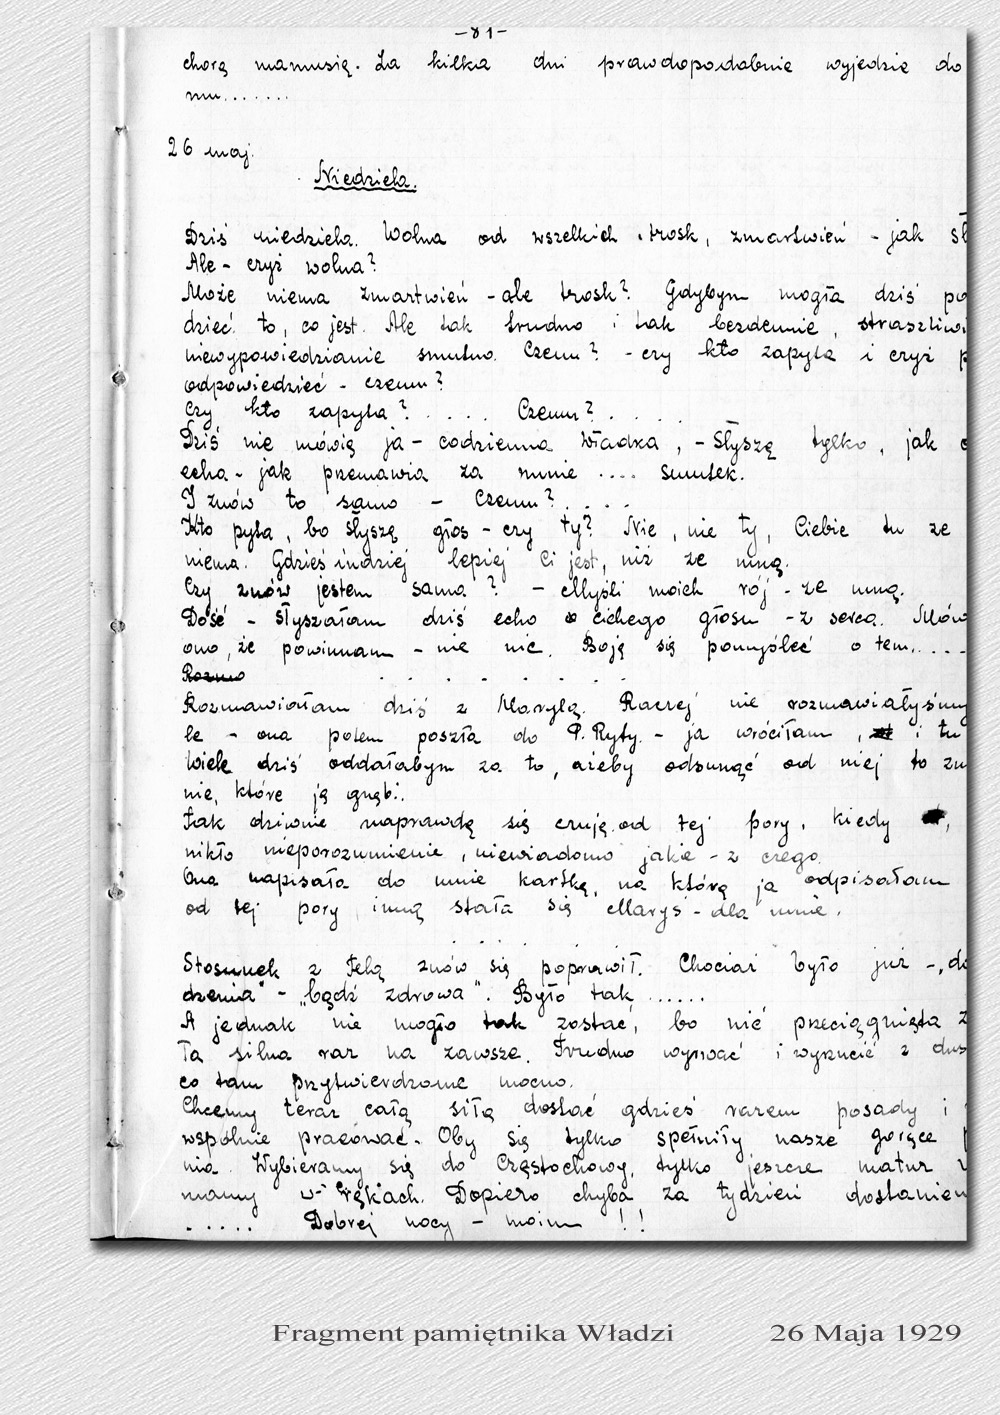 -81-
chorą mamusię. Za kilka dni prawdopodobnie wyjedzie do
mu.......
26 maj.
Niedziela.
Dziś niedziela. Wolna od wszelkich trosk, zmartwień - jak sł
Ale - czyż wolna?
Może niema zmartwień - ale trosk? Gdybym mogła dziś po
dzieć to, co jest. Ale tak trudno i tak bezdennie, straszliwi
niewypowiedzianie smutno. Czemu? - czy kto zapyta i czyż p
odpowiedzieć - czemu?
Czy kto zapyta? . . . . Czemu? . . . .
Dziś nie mówię ja - codzienna Władka, - Słyszę tylko, jak
echa - jak przemawia za mnie .... smutek.
I znów to samo - Czemu? . . . .
Kto pyta, bo słyszę głos - czy ty? Nie, nie ty, Ciebie tu ze
niema. Gdzieś indziej lepiej Ci jest, niż ze mną.
Czy znów jestem sama? - Myśli moich rój - ze mną.
Dość - Słyszałam dziś echo cichego głosu - z serca. Mów
ono, że powinnam - nie nic. Boję się pomyśleć o tem.....
Rozmo . . . . . . .
Rozmawiałam dziś z Marylą. Raczej nie rozmawiałyśmy
le - ona potem poszła do P. Ryty. - ja wróciłam, i tu
Wiele dziś oddałabym za to, ażeby odsunąć od niej to zm
nie, które ją gnębi.
Tak dziwnie naprawdę się czuję od tej pory, kiedy ,
nikło nieporozumienie, niewiadomo jakie - z czego.
Ona napisała do mnie kartkę, na którą ja odpisałam
od tej pory inną stała się Maryś - dla mnie.
. . . . . .
Stosunek z Felą znów się poprawił. Chociaż było już - „do
dzenia" - „bądź zdrowa". Było tak ......
A jednak nie mogło tak zostać, bo nić przeciągnięta z
ła silna raz na zawsze. Trudno wyrwać i wyrzucić z dus
co tam przytwierdzone mocno.
Chcemy teraz całą siłą dostać gdzieś razem posady i
wspólnie pracować. Oby się tylko spełniły nasze gorące p
nia. Wybieramy się do Częstochowy, tylko jeszcze matur
mamy w rękach. Dopiero chyba za tydzień dostaniem
..... Dobrej nocy - moim !!
Fragment pamiętnika Władzi 26 Maja 1929